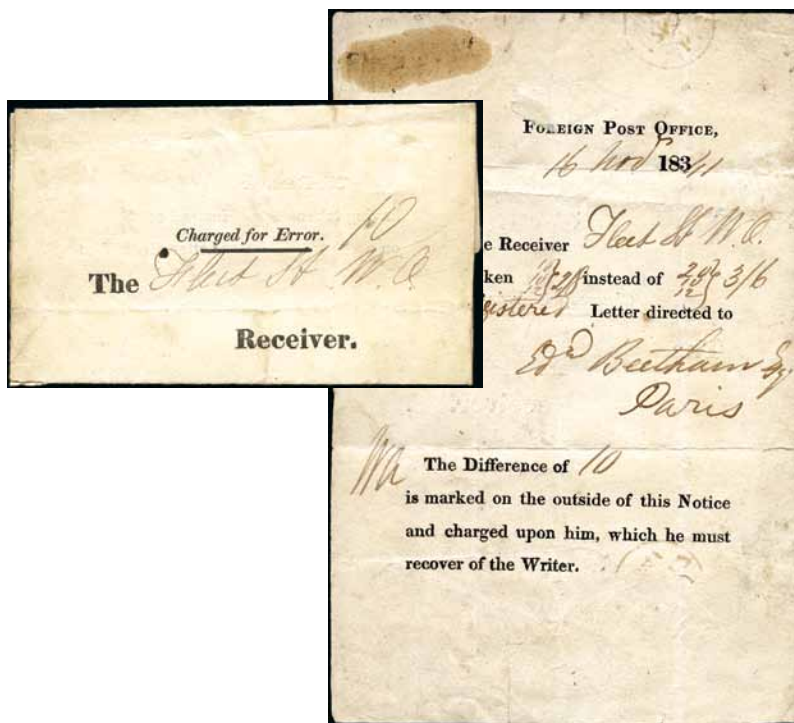 Charged for Error. 10
The Fleet St W. O.
Receiver.
FOREIGN POST OFFICE,
16 Nov 1841
e Receiver Fleet St W. O.
ken instead of 3/6
gistered Letter directed to
Edwd Beetham Esq
Paris
The Difference of 10
is marked on the outside of this Notice
and charged upon him, which he must
recover of the Writer.